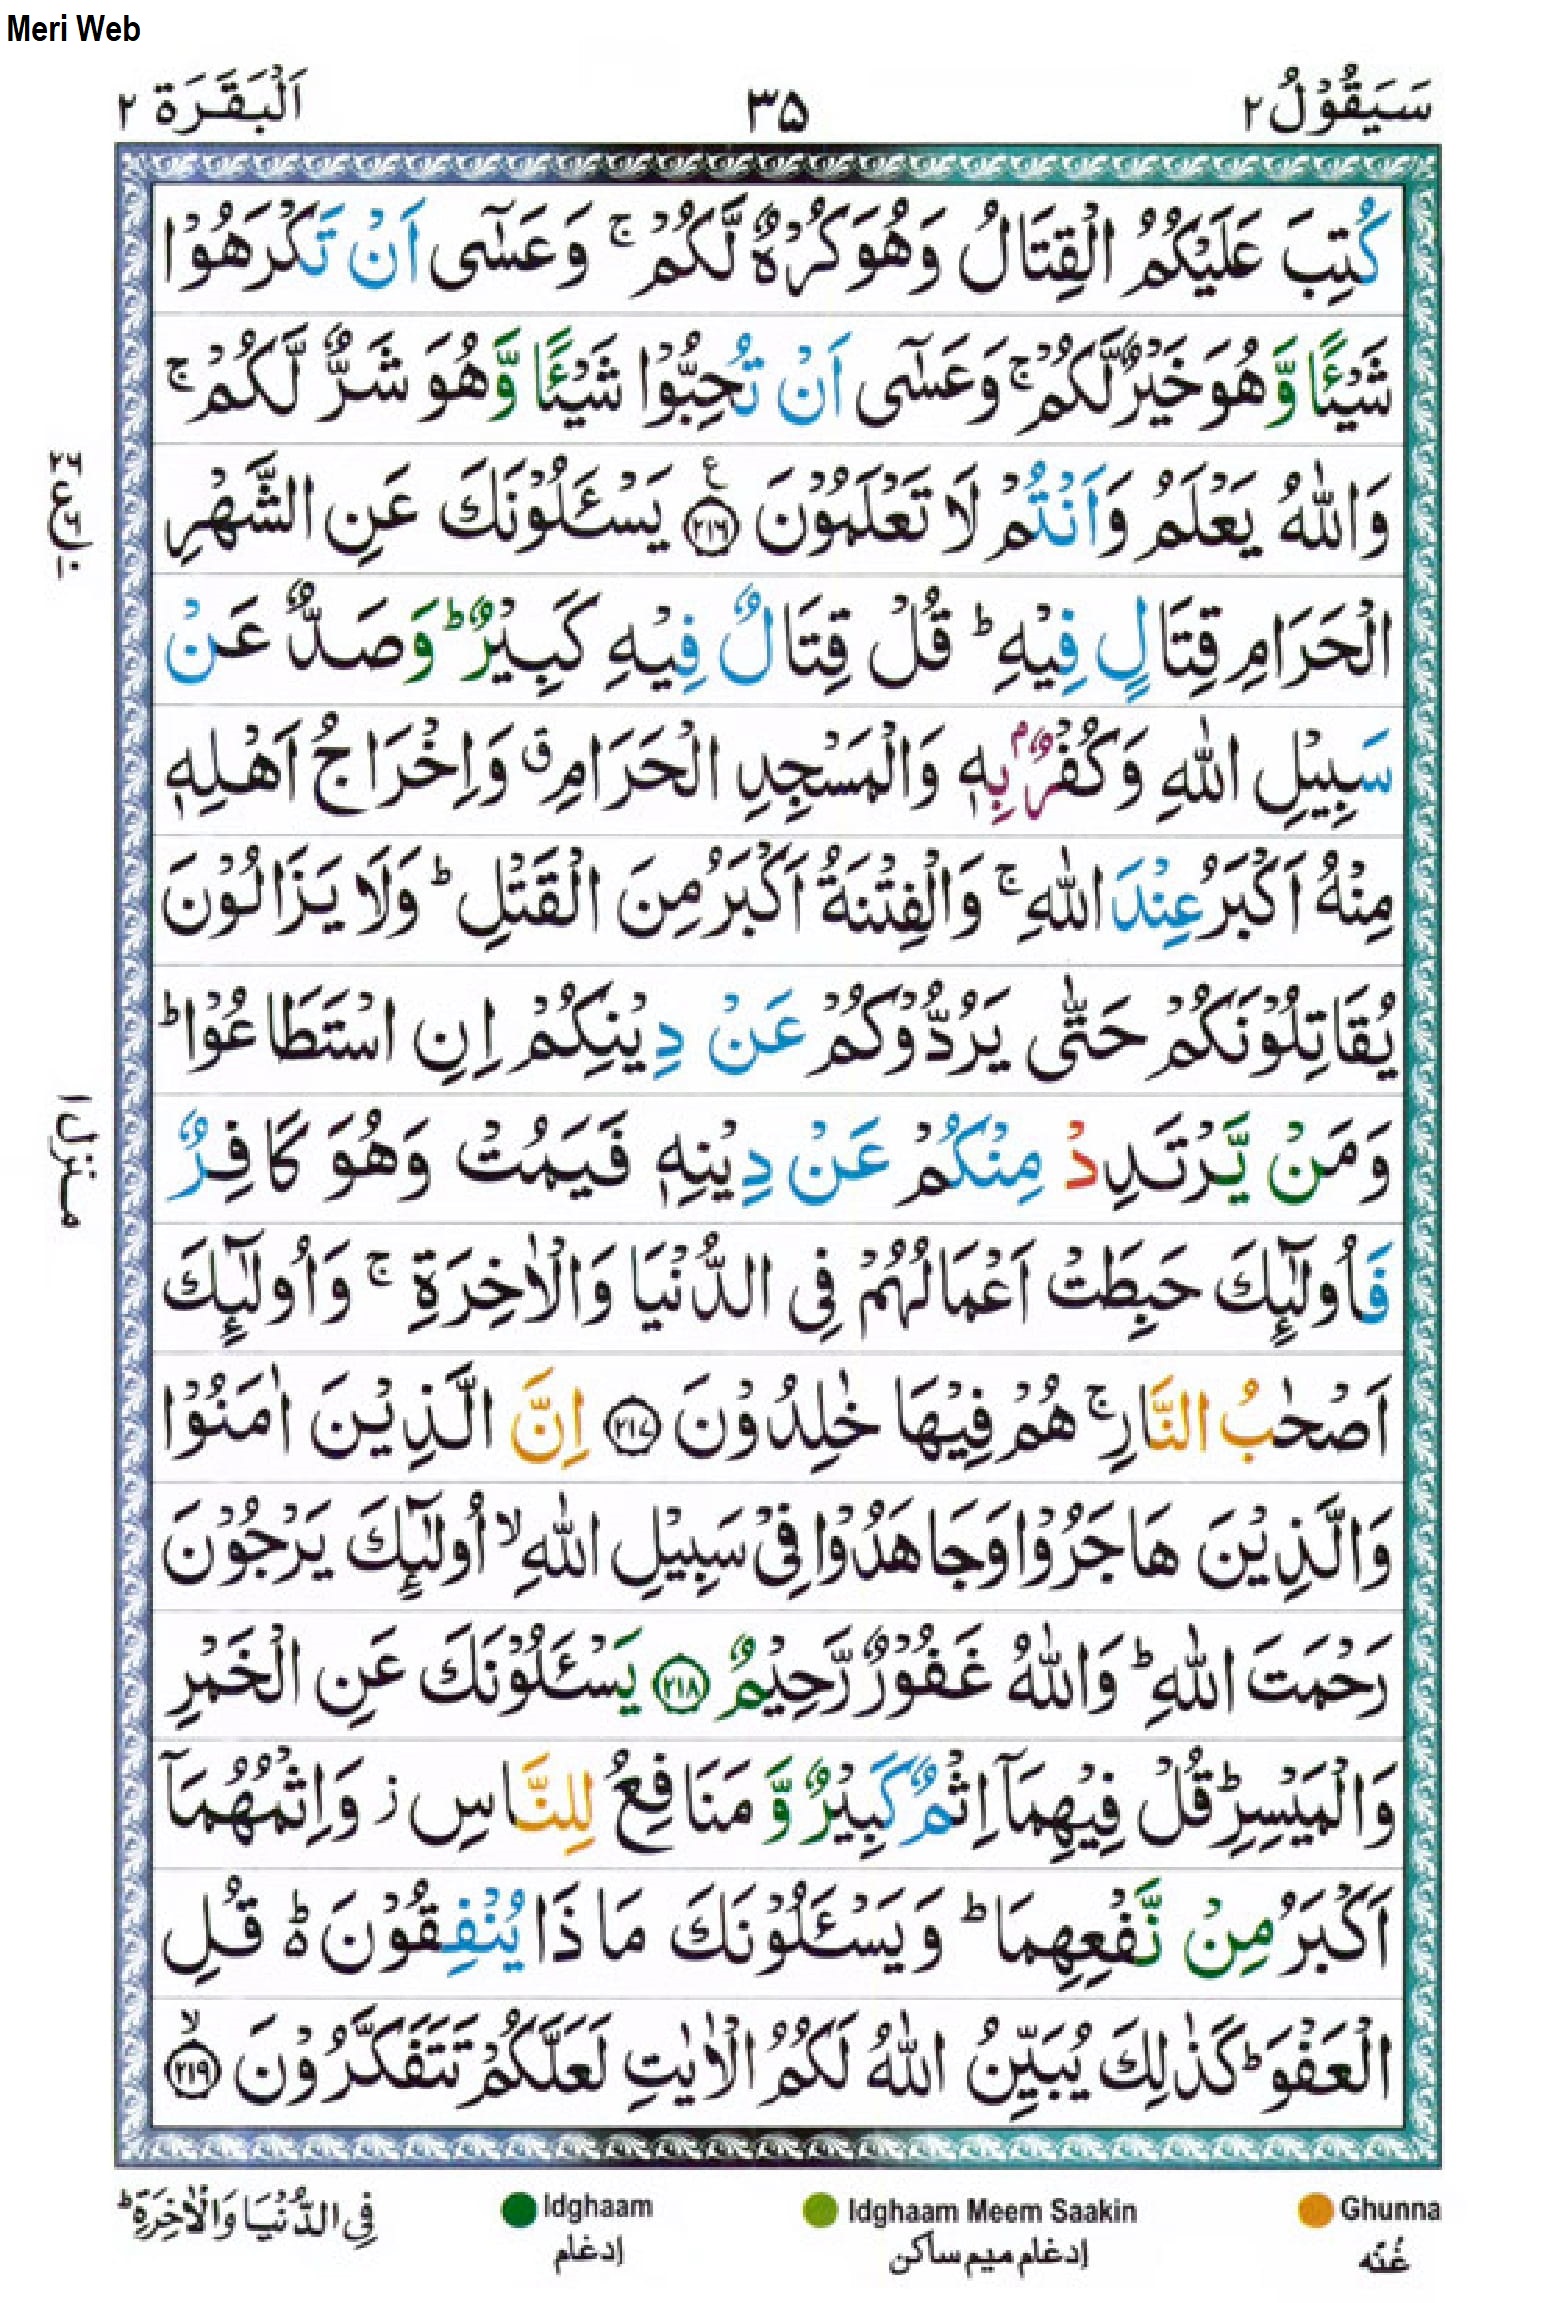 Meri Web
سَيَقُوۡلُ ٢
٣٥
اَلۡبَقَرَة ٢
كُتِبَ عَلَيۡكُمُ الۡقِتَالُ وَهُوَ كُرۡهٌ لَّكُمۡ ۚ وَعَسٰٓى اَنۡ تَكۡرَهُوۡا
شَيۡـًٔا وَّهُوَ خَيۡرٌ لَّكُمۡ ۚ وَعَسٰٓى اَنۡ تُحِبُّوۡا شَيۡـًٔا وَّهُوَ شَرٌّ لَّكُمۡ ۚ
وَاللّٰهُ يَعۡلَمُ وَاَنۡتُمۡ لَا تَعۡلَمُوۡنَ ﴿٢١٦﴾ يَسۡـَٔلُوۡنَكَ عَنِ الشَّهۡرِ
الۡحَرَامِ قِتَالٍ فِيۡهِ ؕ قُلۡ قِتَالٌ فِيۡهِ كَبِيۡرٌ ؕ وَصَدٌّ عَنۡ
سَبِيۡلِ اللّٰهِ وَكُفۡرٌۢ بِهٖ وَالۡمَسۡجِدِ الۡحَرَامِ ۗ وَاِخۡرَاجُ اَهۡلِهٖ
مِنۡهُ اَكۡبَرُ عِنۡدَ اللّٰهِ ۚ وَالۡفِتۡنَةُ اَكۡبَرُ مِنَ الۡقَتۡلِ ؕ وَلَا يَزَالُوۡنَ
يُقَاتِلُوۡنَكُمۡ حَتّٰى يَرُدُّوۡكُمۡ عَنۡ دِيۡنِكُمۡ اِنِ اسۡتَطَاعُوۡا ؕ
وَمَنۡ يَّرۡتَدِدۡ مِنۡكُمۡ عَنۡ دِيۡنِهٖ فَيَمُتۡ وَهُوَ كَافِرٌ
فَاُولٰٓئِكَ حَبِطَتۡ اَعۡمَالُهُمۡ فِى الدُّنۡيَا وَالۡاٰخِرَةِ ۚ وَاُولٰٓئِكَ
اَصۡحٰبُ النَّارِ ۚ هُمۡ فِيۡهَا خٰلِدُوۡنَ ﴿٢١٧﴾ اِنَّ الَّذِيۡنَ اٰمَنُوۡا
وَالَّذِيۡنَ هَاجَرُوۡا وَجَاهَدُوۡا فِىۡ سَبِيۡلِ اللّٰهِ ۙ اُولٰٓئِكَ يَرۡجُوۡنَ
رَحۡمَتَ اللّٰهِ ؕ وَاللّٰهُ غَفُوۡرٌ رَّحِيۡمٌ ﴿٢١٨﴾ يَسۡـَٔلُوۡنَكَ عَنِ الۡخَمۡرِ
وَالۡمَيۡسِرِ ؕ قُلۡ فِيۡهِمَاۤ اِثۡمٌ كَبِيۡرٌ وَّمَنَافِعُ لِلنَّاسِ ز وَاِثۡمُهُمَاۤ
اَكۡبَرُ مِنۡ نَّفۡعِهِمَا ؕ وَيَسۡـَٔلُوۡنَكَ مَاذَا يُنۡفِقُوۡنَ ؕ قُلِ
الۡعَفۡوَ ؕ كَذٰلِكَ يُبَيِّنُ اللّٰهُ لَكُمُ الۡاٰيٰتِ لَعَلَّكُمۡ تَتَفَكَّرُوۡنَ ۙ ﴿٢١٩﴾
منزل ١
فِى الدُّنۡيَا وَالۡاٰخِرَةِ ؕ
Idghaam
إدغام
Idghaam Meem Saakin
إدغام ميم ساكن
Ghunna
غُنّه